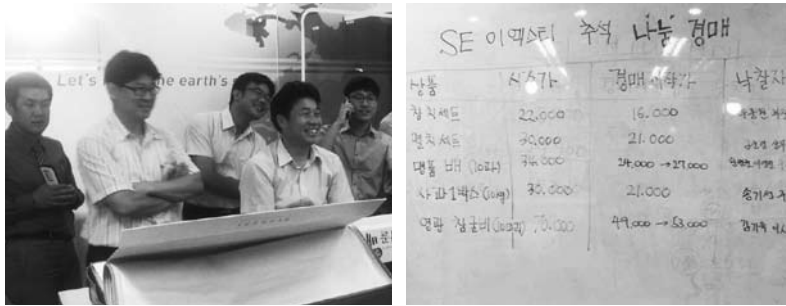 Let's the earth's
SE 이엑스티 추석 나눔 경매
상품 시중가 경매시작가 낙찰자
참치세트 22,000 16,000
멸치세트 30,000 21,000
명품 배 (10과) 34,000 24,000 → 27,000
사과 1박스 (10kg) 30,000 21,000 송기석
영광 참굴비 70,000 49,000 → 53,000